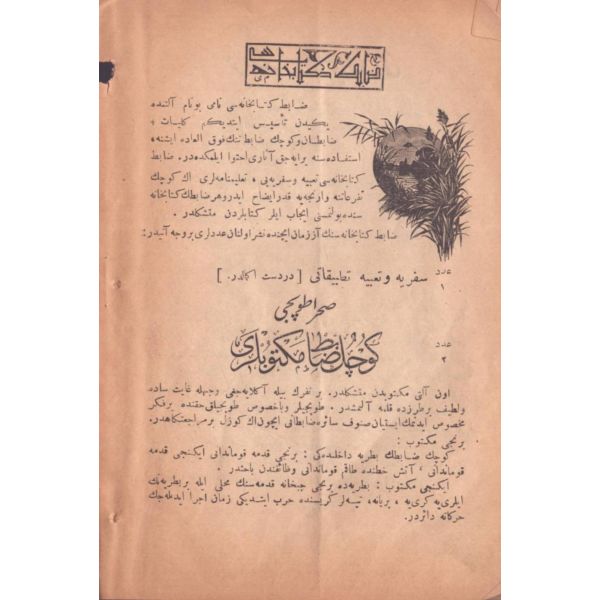 ضابط كتابخانه‌سی نامی بو نام آلتنده
یكیدن تأسیس ایتدیكم كلیات +
ضابطان و كوچك ضابطلرك فوق العاده ایشنه،
استفاده‌سنه یرایه‌جق آثاری احتوا ایلمكده‌در. ضابط
كتابخانه‌سی تعبیه و سفریه‌یی، تعلیمنامه‌لری اك كوچك
تفرعاتنه وارنجه‌یه قدر ایضاح ایدر و هر ضابطك كتابخانه
سنده بولنمسی ایجاب ایلر كتابلردن متشكلدر.
ضابط كتابخانه‌سنك آز زمان ایچنده نشر اولنان عددلری بروجه آتیدر:
عدد
١ سفریه و تعبیه تطبیقاتی [دردست اكمالدر.]
صحرا طوپجی
عدد
٢ كوچك ضابط مكتوبلری
اون آلتی مكتوبدن متشكلدر. بر نفرك بیله آكلایه‌جغی وجهله غایت ساده
ولطیف بر طرزده قلمه آلنمشدر. طوپجیلر وباخصوص طوپجیلق حقنده بر فكر
مخصوص ایدنمك ایستیان صنوف سائره ضابطانی ایچون اك كوزل بر مراجعتكاهدر.
برنجی مكتوب:
كوچك ضابطك بطریه داخلنده‌كی: برنجی قدمه قوماندانی ایكنجی قدمه
قوماندانی، آتش خطنده طاقم قوماندانی وظائفندن باحثدر.
ایكنجی مكتوب: بطریه‌ده برنجی جبخانه قدمه‌سنك محلی ایله بر بطریه‌نك
ایلری‌یه كری‌یه، یریانه، تپه‌لر كریسنده حرب ایشدیكی زمان اجرا ایدیله‌جك
حركاته دائردر.